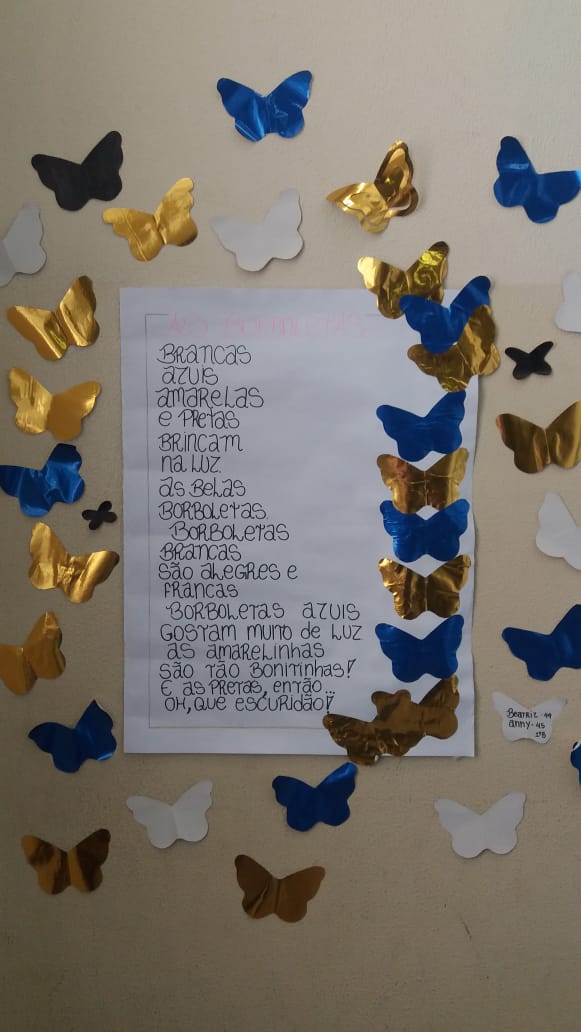 AS BORBOLETAS
BRANCAS
AZUIS
AMARELAS
E PRETAS
BRINCAM
NA LUZ
AS BELAS
BORBOLETAS.
BORBOLETAS
BRANCAS
SÃO ALEGRES E
FRANCAS
BORBOLETAS AZUIS
GOSTAM MUITO DE LUZ
AS AMARELINHAS
SÃO TÃO BONITINHAS!
E AS PRETAS, ENTÃO...
OH, QUE ESCURIDÃO!
Beatriz - 44
anny - 45